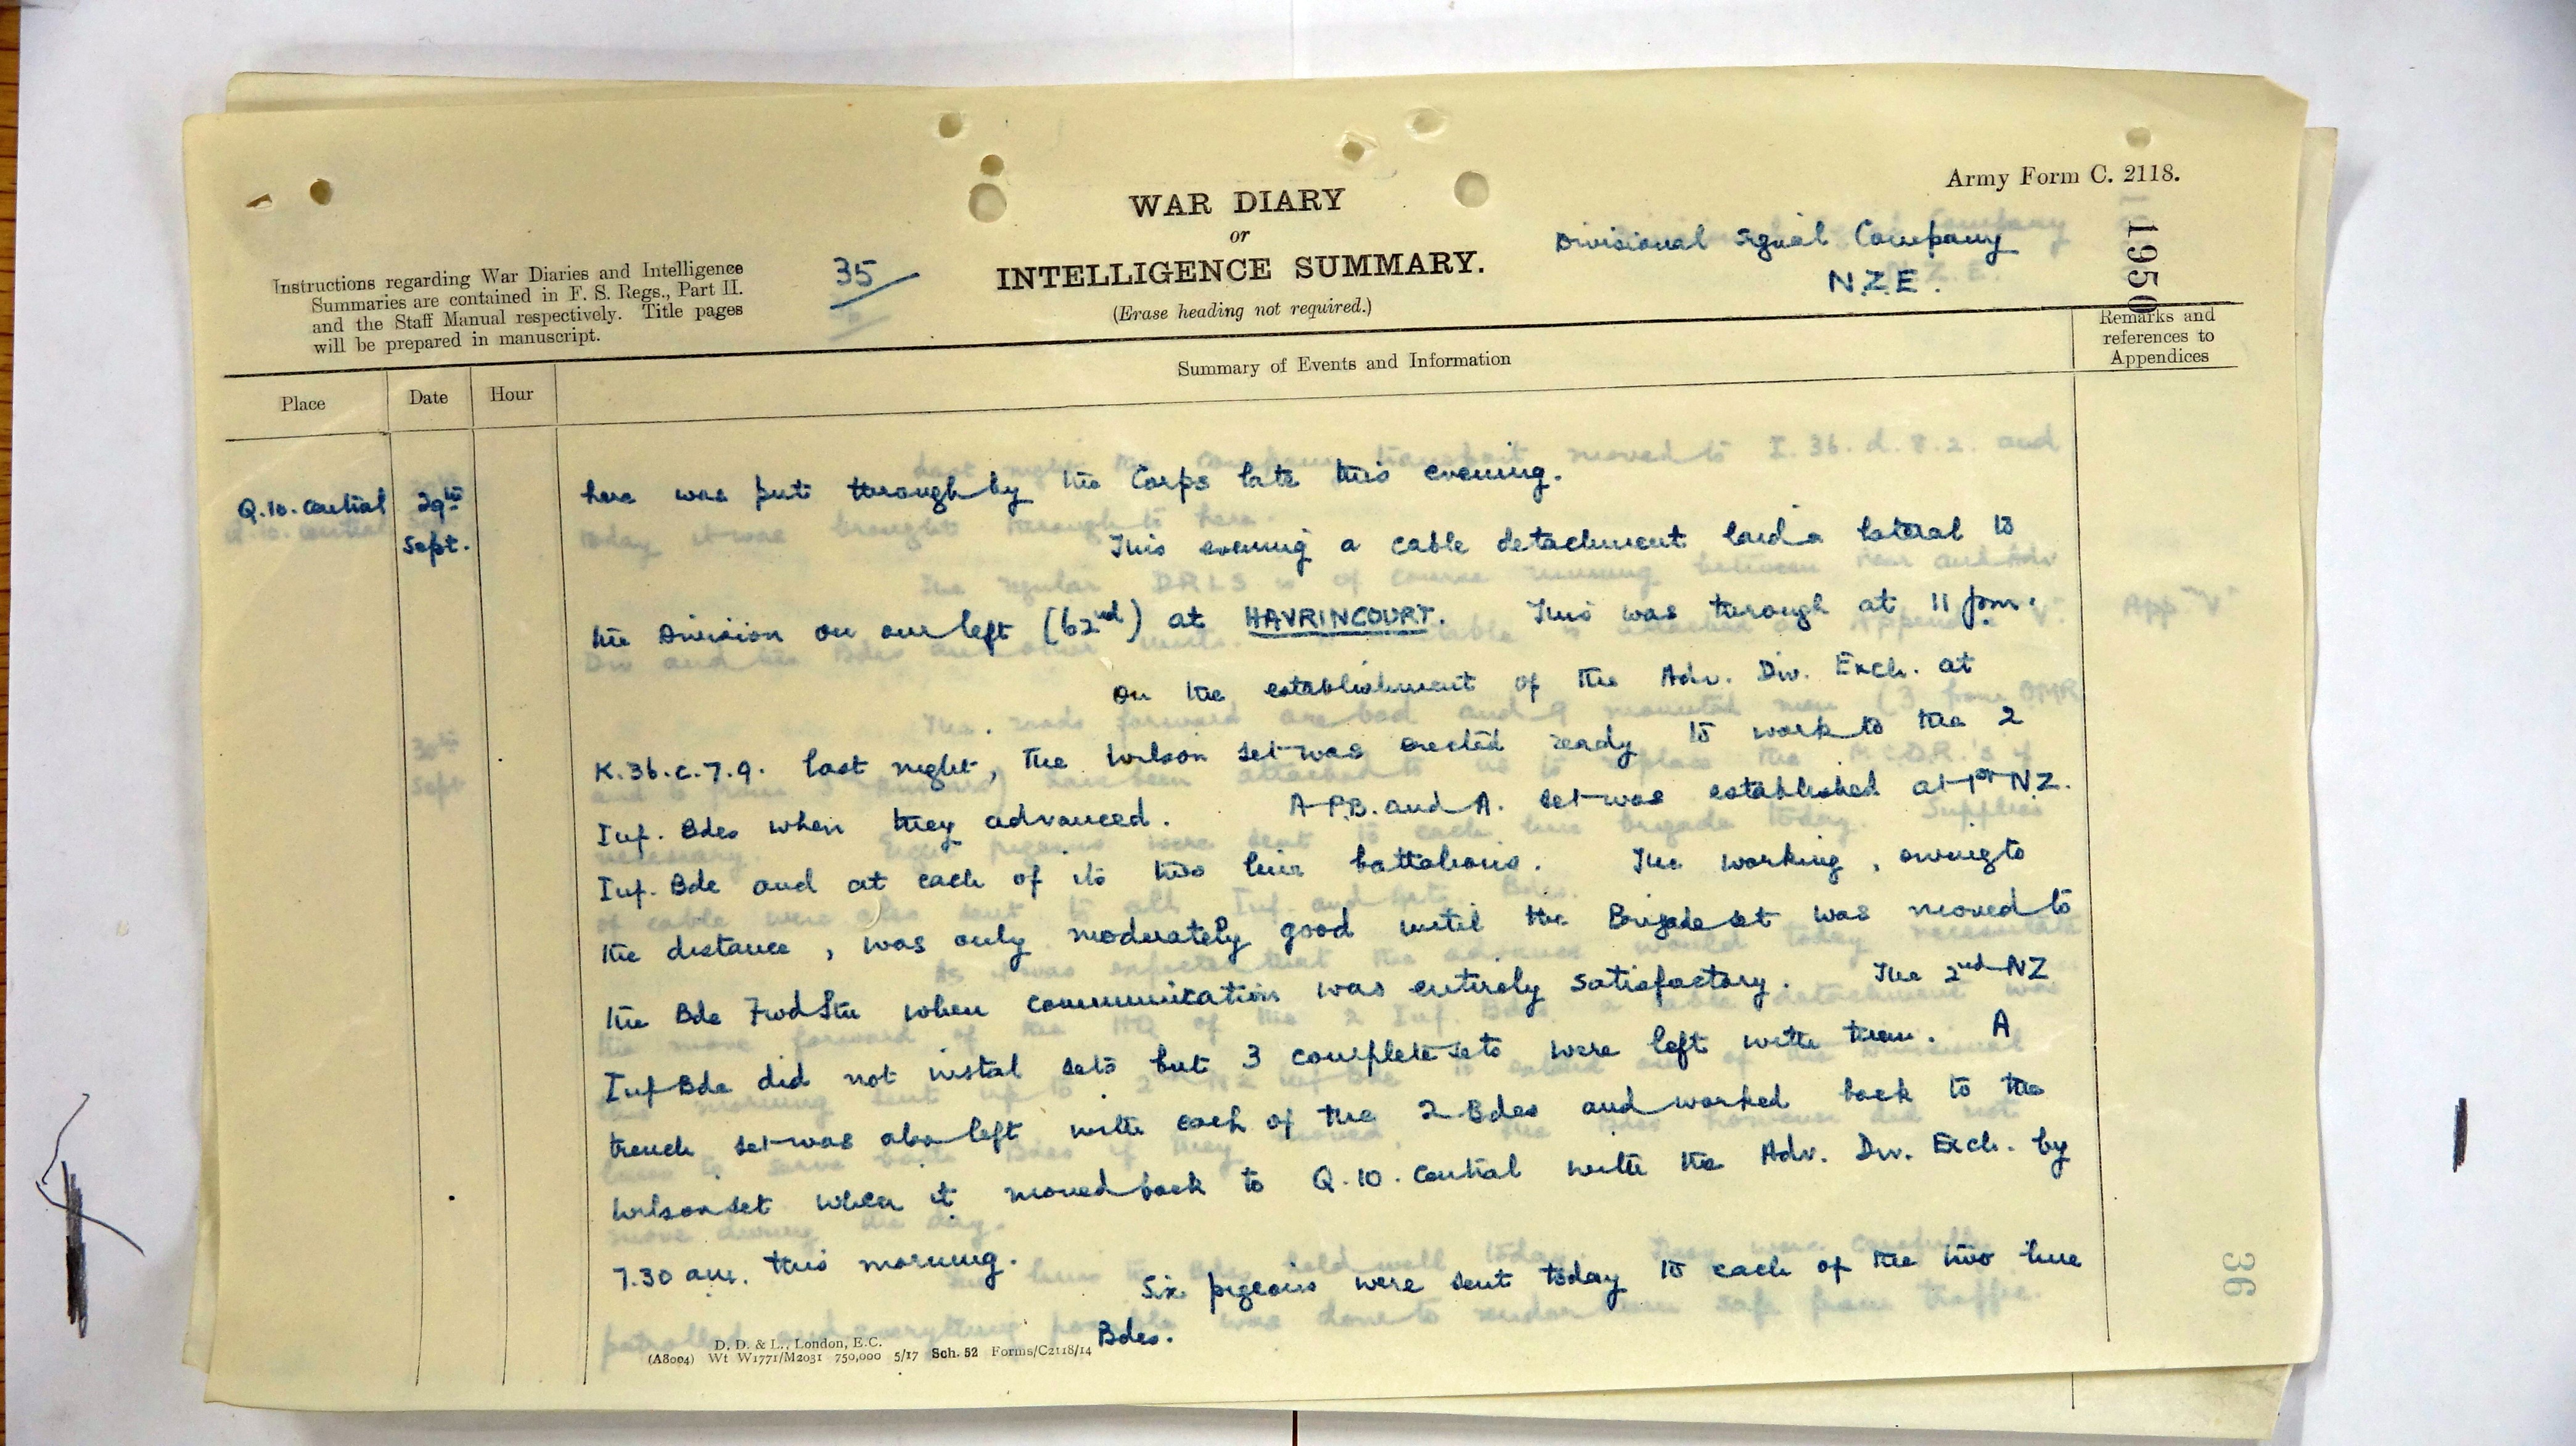 Army Form C. 2118.
WAR DIARY
or
INTELLIGENCE SUMMARY.
(Erase heading not required.)
Instructions regarding War Diaries and Intelligence
Summaries are contained in F. S. Regs., Part II.
and the Staff Manual respectively. Title pages
will be prepared in manuscript.
35
Divisional Signal Company
N.Z.E.
1950
Place
Date
Hour
Summary of Events and Information
Remarks and
references to
Appendices
Q.10.central
29th
Sept.
here was put through by the Corps late this evening.
This evening a cable detachment laid a lateral to
the Division on our left (62nd) at HAVRINCOURT. This was through at 11 pm.
On the establishment of the Adv. Div. Exch. at
K.36.c.7.9. last night, the Wilson set was erected ready to work to the 2
Inf. Bdes when they advanced. A P.B. and A. set was established at 1st NZ.
Inf. Bde and at each of its two line battalions. The working, owing to
the distance, was only moderately good until the Brigade set was moved to
the Bde Fwd Stn when communication was entirely satisfactory. The 2nd NZ
Inf Bde did not instal sets but 3 complete sets were left with them. A
trench set was also left with each of the 2 Bdes and worked back to the
Wilson set when it moved back to Q.10.central with the Adv. Div. Exch. by
7.30 am. this morning.
Six pigeons were sent today to each of the two line
Bdes.
D. D. & L., London, E.C.
(A8004) Wt W1771/M2031 750,000 5/17 Sch. 52 Forms/C2118/14
36